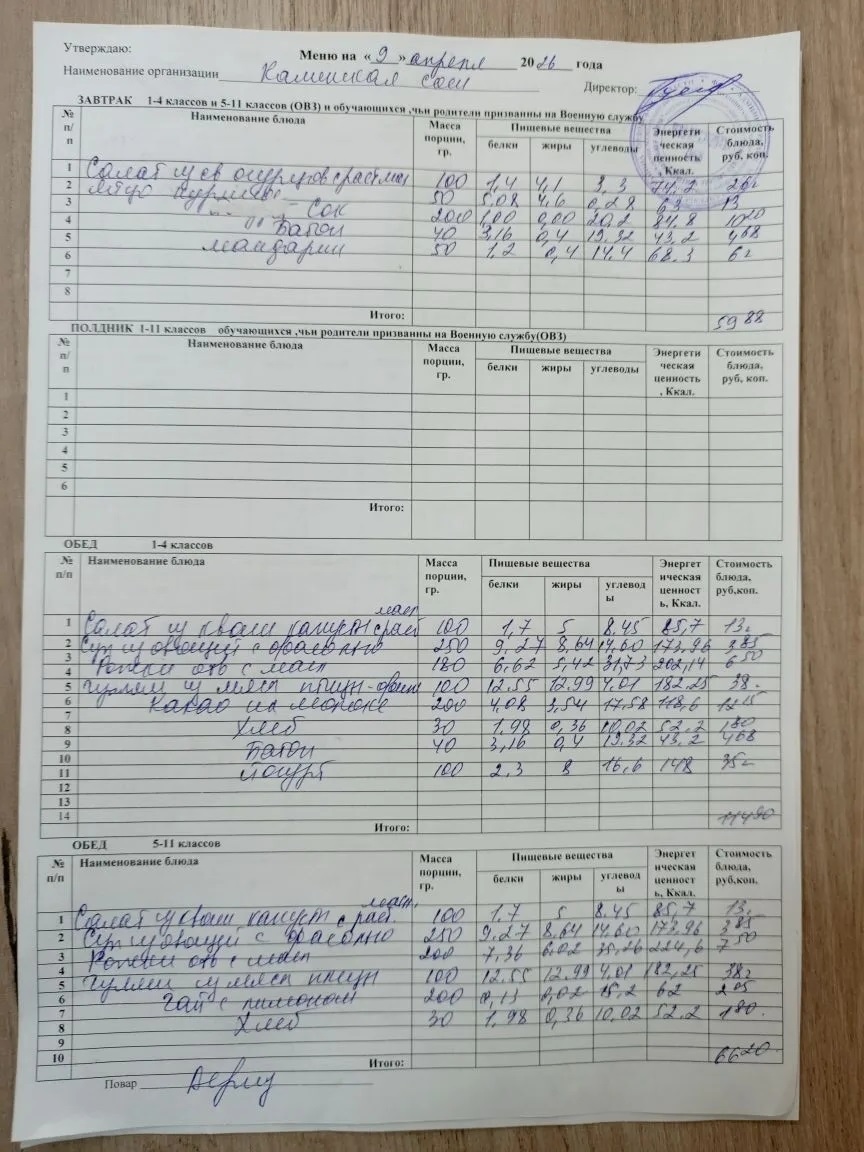 Утверждаю:
Меню на «9» апреля 2026 года
Наименование организации Каменская сош Директор:
ЗАВТРАК 1-4 классов и 5-11 классов (ОВЗ) и обучающихся ,чьи родители призванны на Военную службу
№ п/п Наименование блюда Масса порции, гр. Пищевые вещества белки жиры углеводы Энергети ческая ценность, Ккал. Стоимость блюда, руб, коп.
1 Салат из св огурцов с раст мас 100 1,4 4,1 3,3 74,2 26=
2 яйцо куриное 50 5,08 4,6 0,28 63 13
3 Сок 200 1,00 0,00 20,2 84,8 10 20
4 Батон 40 3,16 0,4 19,32 43,2 4 68
5 мандарин 50 1,2 0,4 14,4 68,3 6=
6
7
8
Итого: 59 88
ПОЛДНИК 1-11 классов обучающихся ,чьи родители призванны на Военную службу(ОВЗ)
№ п/п Наименование блюда Масса порции, гр. Пищевые вещества белки жиры углеводы Энергети ческая ценность , Ккал. Стоимость блюда, руб, коп.
1
2
3
4
5
6
Итого:
ОБЕД 1-4 классов
№ п/п Наименование блюда Масса порции, гр. Пищевые вещества белки жиры углевод ы Энергет ическая ценност ь, Ккал. Стоимость блюда, руб,коп.
1 Салат из кваш капусты с раст масл 100 1,7 5 8.45 85,7 13=
2 Суп из овощей с фасолью 250 9,27 8,64 14,60 173,96 3 85
3 Рожки отв с масл 180 6,62 5,42 31,73 202,14 6 50
4 гуляш из мяса птицы 100 12.55 12.99 4,01 182,25 38-
5 Какао на молоке 200 4,08 3,54 17,58 118,6
6 Хлеб 30 1,98 0,36 10,02 52,2 1 80
7 Батон 40 3,16 0,4 19.32 43,2 4 68
8 йогурт 100 2,3 8 16,6 148 35=
9
10
11
12
13
14
Итого: 114 90
ОБЕД 5-11 классов
№ п/п Наименование блюда Масса порции, гр. Пищевые вещества белки жиры углевод ы Энергет ическая ценност ь, Ккал. Стоимость блюда, руб,коп.
1 Салат из кваш капусты с раст. масл. 100 1,7 5 8.45 85,7 13=
2 Суп из овощей с фасолью 250 9,27 8,64 14,60 173,96 3 85
3 Рожки отв с масл 200 7,36 6.02 35,26 224,6 7 50
4 гуляш из мяса птицы 100 12.55 12.99 4,01 182,25 38=
5 Чай с лимоном 200 0,13 0,02 15,2 62 2 05
6 Хлеб 30 1,98 0,36 10,02 52.2 1 80
7
8
9
10
Итого: 66 20
Повар